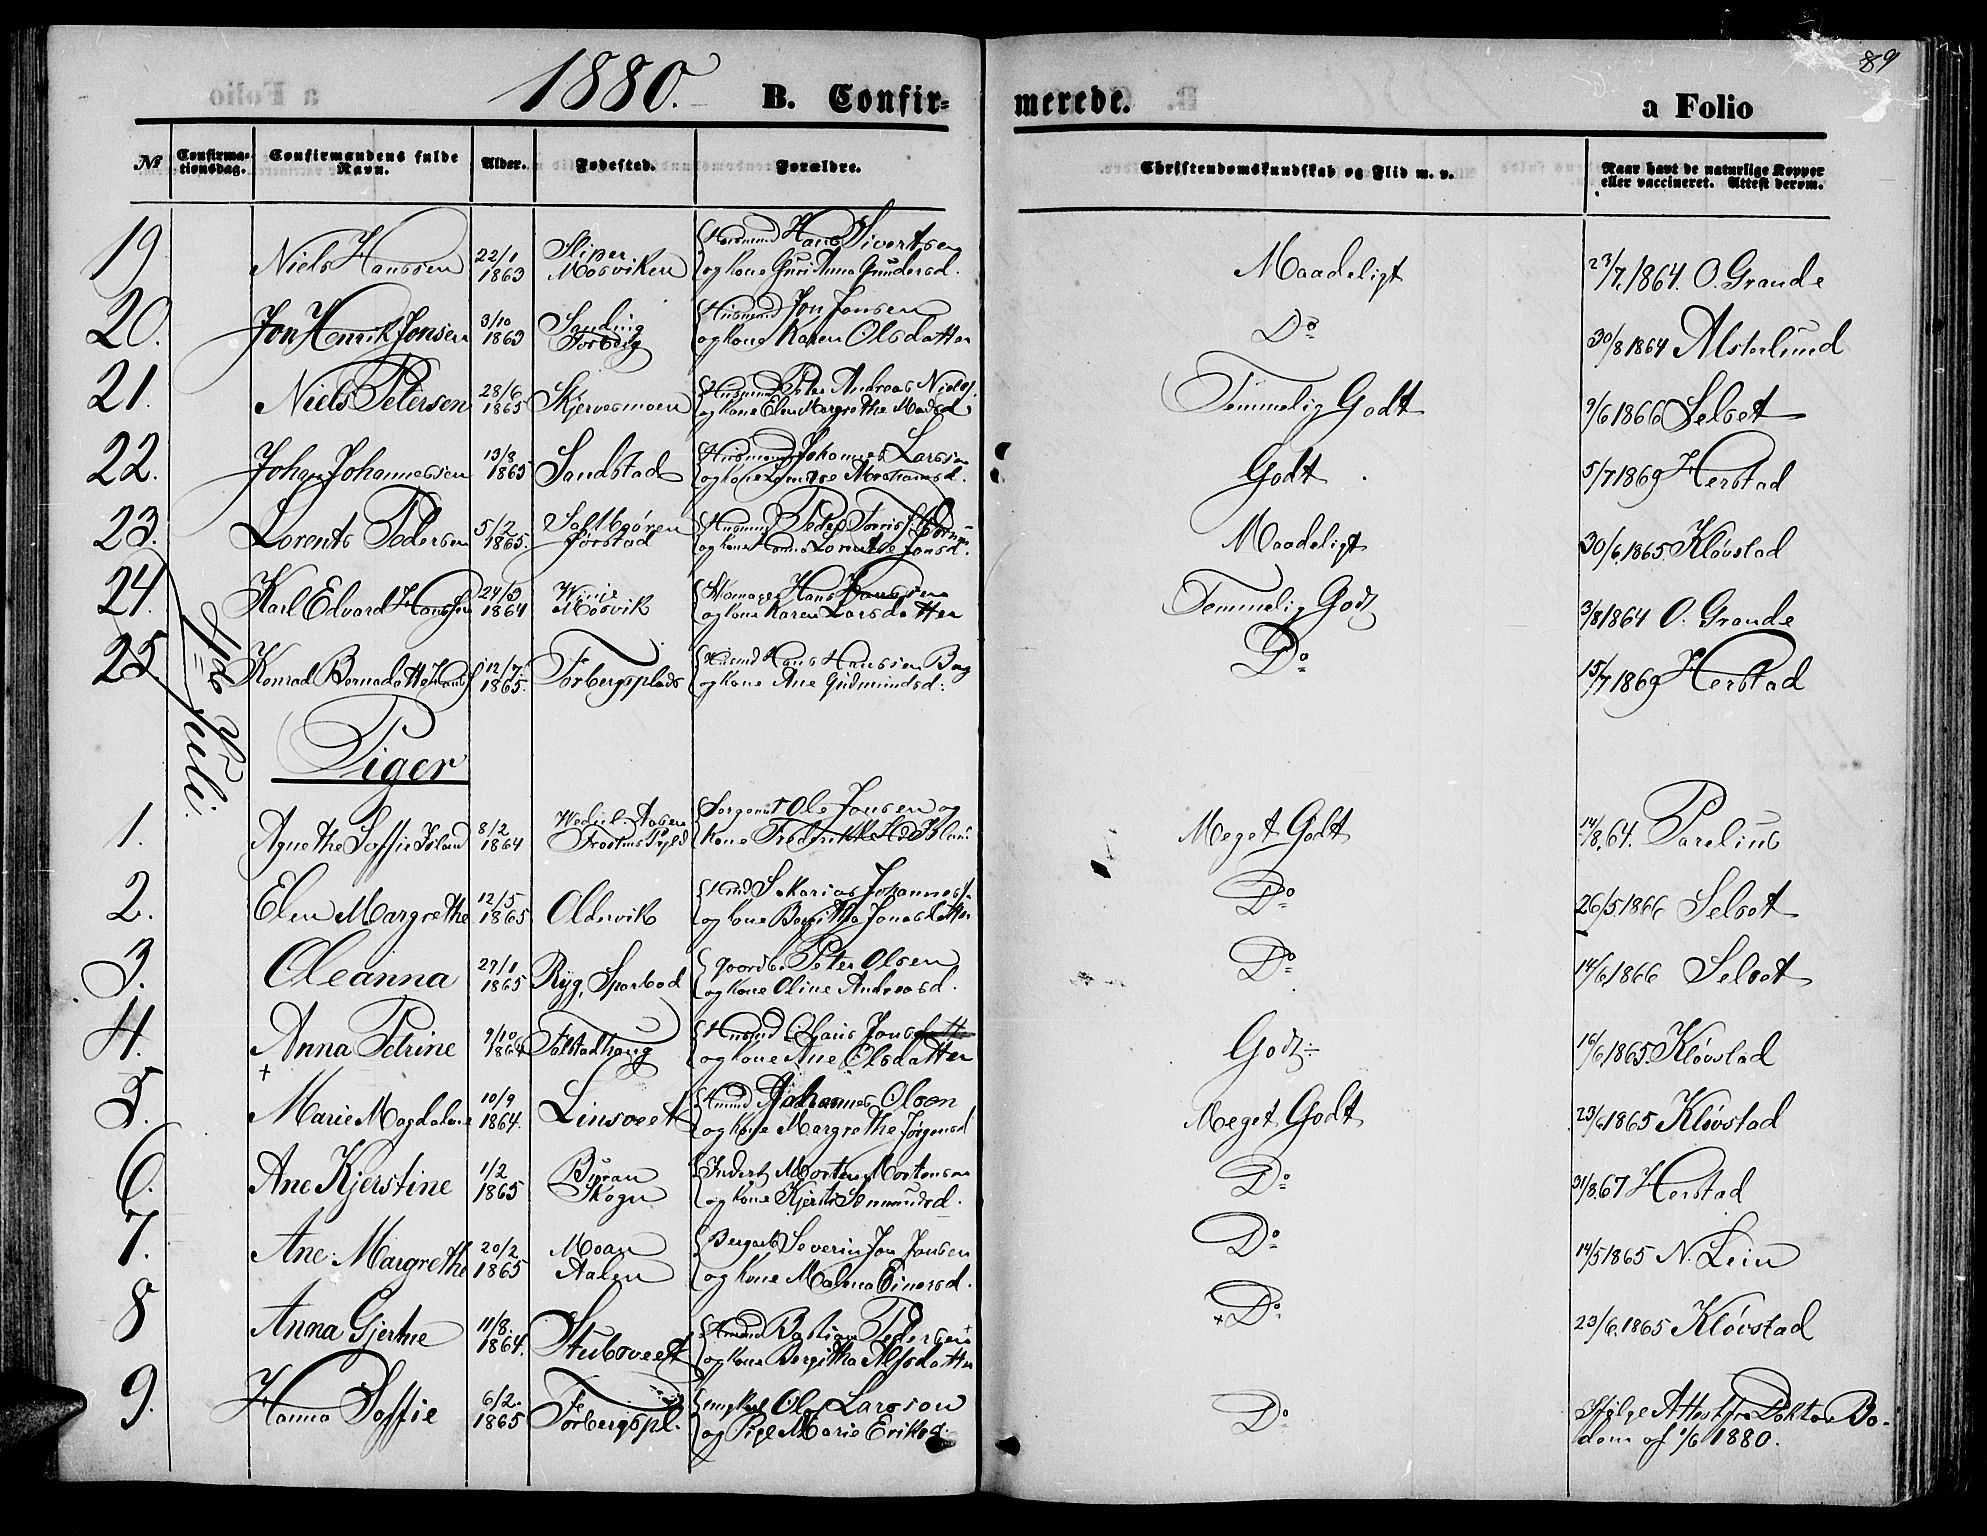 1880.
B. Confir=
merede.
a Folio
89
No
Confirma=
tionsdag.
Confirmandens fulde
Navn.
Alder.
Fødested.
Forældre.
Christendomskundskab og Flid m. v.
Naar havt de naturlige Kopper
eller vaccineret. Attest derom.
19 Niels Hanssen 22/1 1863 Sliper Mosviken Hans Sivertsen og kone Guri Anna Gundersd. Maadeligt 23/7 1864. O. Grande
20. Jon Henrik Jonsen 3/10 1863 Husmnd Jon Jonsen og kone Karen Olsdatter Do 30/8 1864 Alsterlund
21. Niels Petersen 28/6 1865 Skjervesmoen Husmnd Peter Andreas Niels. og kone Elen Margrethe Madsd Temmelig Godt 9/6 1866 Selset
22. Johan Johannessen 13/8 1865 Sandstad Husmand Johannes Larssen og kone Abrahamsd. Godt 5/7 1869 Herstad
23. Lorents Pedersen 5/2 1865. Jørstad Husmnd Peder og kone Hanna Lorntse Jonsd. Maadeligt 30/6 1865 Kløvstad
24. Karl Edvard Hanssen 24/3 1864 Mosvik Skomager Hans Hanssen og kone Karen Larsdatter Temmelig Godt 3/8 1864 O. Grande
25. Konrad Bernadotte Hans 12/7 1865. Forbergsplads Husmd Hans Hanssen Berg og kone Ane Gudmundsd: Do 15/7 1869 Herstad
Juli.
Piger
1. Agnethe Soffie Island 8/2 1864 Ole Jonsen og kone Fredrikke Island Meget Godt 14/8. 64. Parelius
2. Elen Margrethe 12/5 1865 Oldervik Sakarias Johannes. og kone Bergitha Jonasdatter Do 26/5 1866 Selset
3. Oleanna 27/1 1865 Ryg, Sparbod Peter Olsen og kone Oline Andreasd. Do 14/6 1866 Selset
4. Anna Petrine 9/10 1864 Falstadhaug Husmd og kone Ane Olsdatter Godt 16/6 1865. Kløvstad
5. Marie Magdalene 10/9 1864. Linsveet Johannes Olsen og kone Margrethe Jørgensd Meget Godt 23/6 1865 Kløvstad
6. Ane Kjerstine 1/2 1865 Byran Skogn Inderst Morten Mortensen og kone Kjersti Do 31/8. 67 Herstad
7. Ane Margrethe 20/2 1865 Moan Aalen Bergarb Severin Jon Jonsen og kone Malena Einersd. Do 14/5 1865 N. Lein
8 Anna Gjertine 11/8. 1864. Stubsveet Bastian Pedersen og kone Bergitha Alfsdatter + Do 23/6. 1865 Kløvstad
9. Hanna Soffie 6/2. 1865 Forbergspl. Ungkarl Ole Larsson og Pige Marie Eriksd. Do Ifølge Attest fra Doktor Bo-
dom af 1/6 1880.